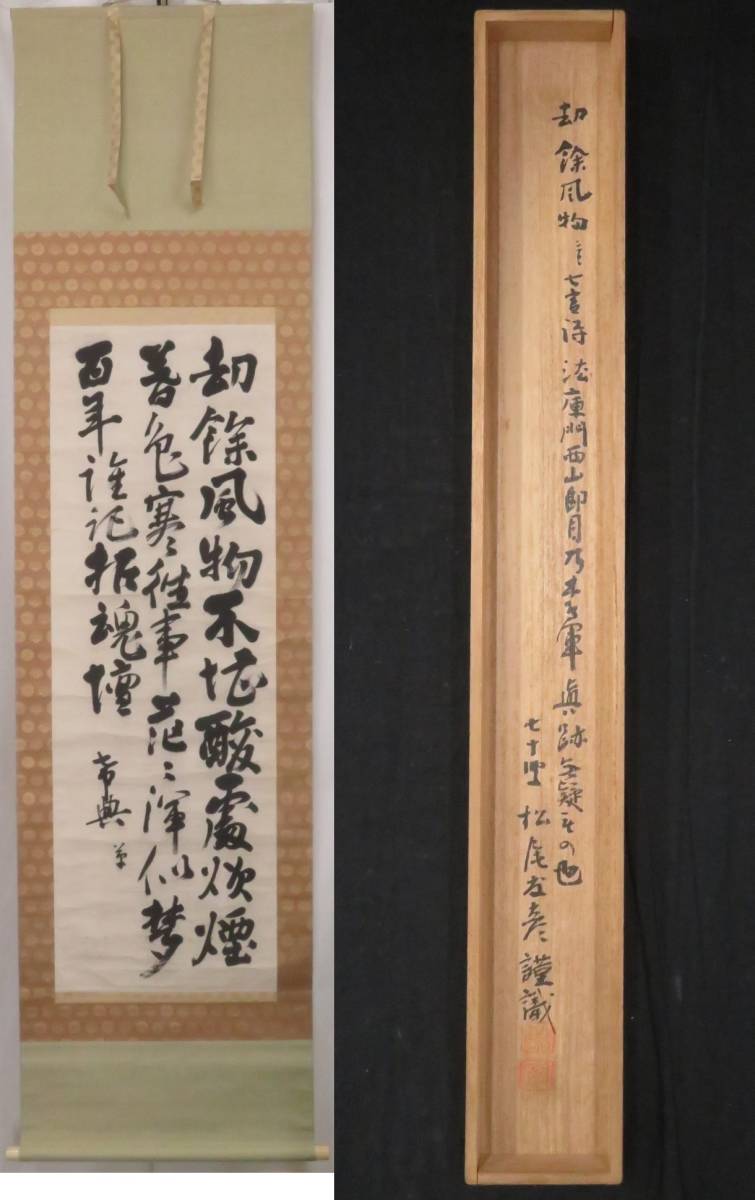 劫餘風物不堪酸處々炊煙
暮色寒々往事茫々渾似夢
百年誰記招魂壇 希典 草
劫餘風物之七言詩 法庫門西山即目乃木将軍真跡無疑もの也
七十叟 松尾 彦 謹識